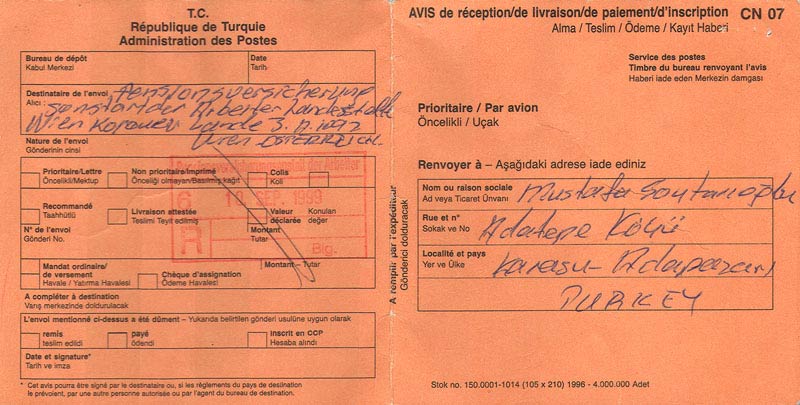 T.C.
République de Turquie
Administration des Postes
Bureau de dépôt
Kabul Merkezi
Date
Tarih
Destinataire de l'envoi
Alıcı :
Pensionsversicherung
der Arbeiter Landesstelle
Wien
Wien OSTERREICH
Nature de l'envoi
Gönderinin cinsi
Prioritaire/Lettre
Öncelikli/Mektup
Non prioritaire/Imprimé
Önceliği olmayan/Basılmış kağıt
Colis
Koli
der Arbeiter
6
10. SEP. 1999
R
Blg.
Recommandé
Taahhütlü
Livraison attestée
Teslimi Teyit edilmiş
Valeur déclarée
Konulan değer
N° de l'envoi
Gönderi No.
Montant
Tutar
Mandat ordinaire/
de versement
Havale / Yatırma Havalesi
Chèque d'assignation
Ödeme Havalesi
Montant – Tutar
A compléter à destination
Varış merkezinde doldurulacak
L'envoi mentionné ci-dessus a été dûment – Yukarıda belirtilen gönderi usulüne uygun olarak
remis
teslim edildi
payé
ödendi
inscrit en CCP
Hesaba alındı
Date et signature*
Tarih ve imza
* Cet avis pourra être signé par le destinataire ou, si les règlements du pays de destination
le prévoient, par une autre personne autorisée ou par l'agent du bureau de destination.
A remplir par l'expéditeur
Gönderici dolduracak
AVIS de réception/de livraison/de paiement/d'inscription CN 07
Alma / Teslim / Ödeme / Kayıt Haberi
Service des postes
Timbre du bureau renvoyant l'avis
Haberi iade eden Merkezin damgası
Prioritaire / Par avion
Öncelikli / Uçak
Renvoyer à – Aşağıdaki adrese iade ediniz
Nom ou raison sociale
Ad veya Ticaret Ünvanı
Mustafa
Rue et n°
Sokak ve No
Adatepe Köyü
Localité et pays
Yer ve Ülke
Karasu - Adapazarı
TURKEY
Stok no. 150.0001-1014 (105 x 210) 1996 - 4.000.000 Adet